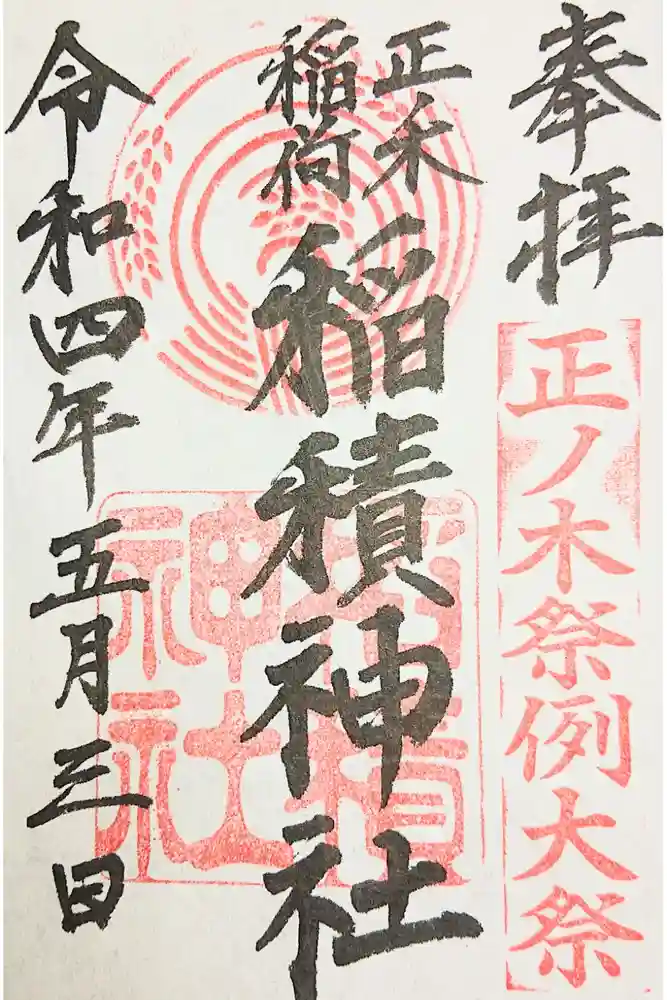 奉拝
正ノ木祭例大祭
正木
稲荷
稲積神社
稲積
神社
令和四年五月三日